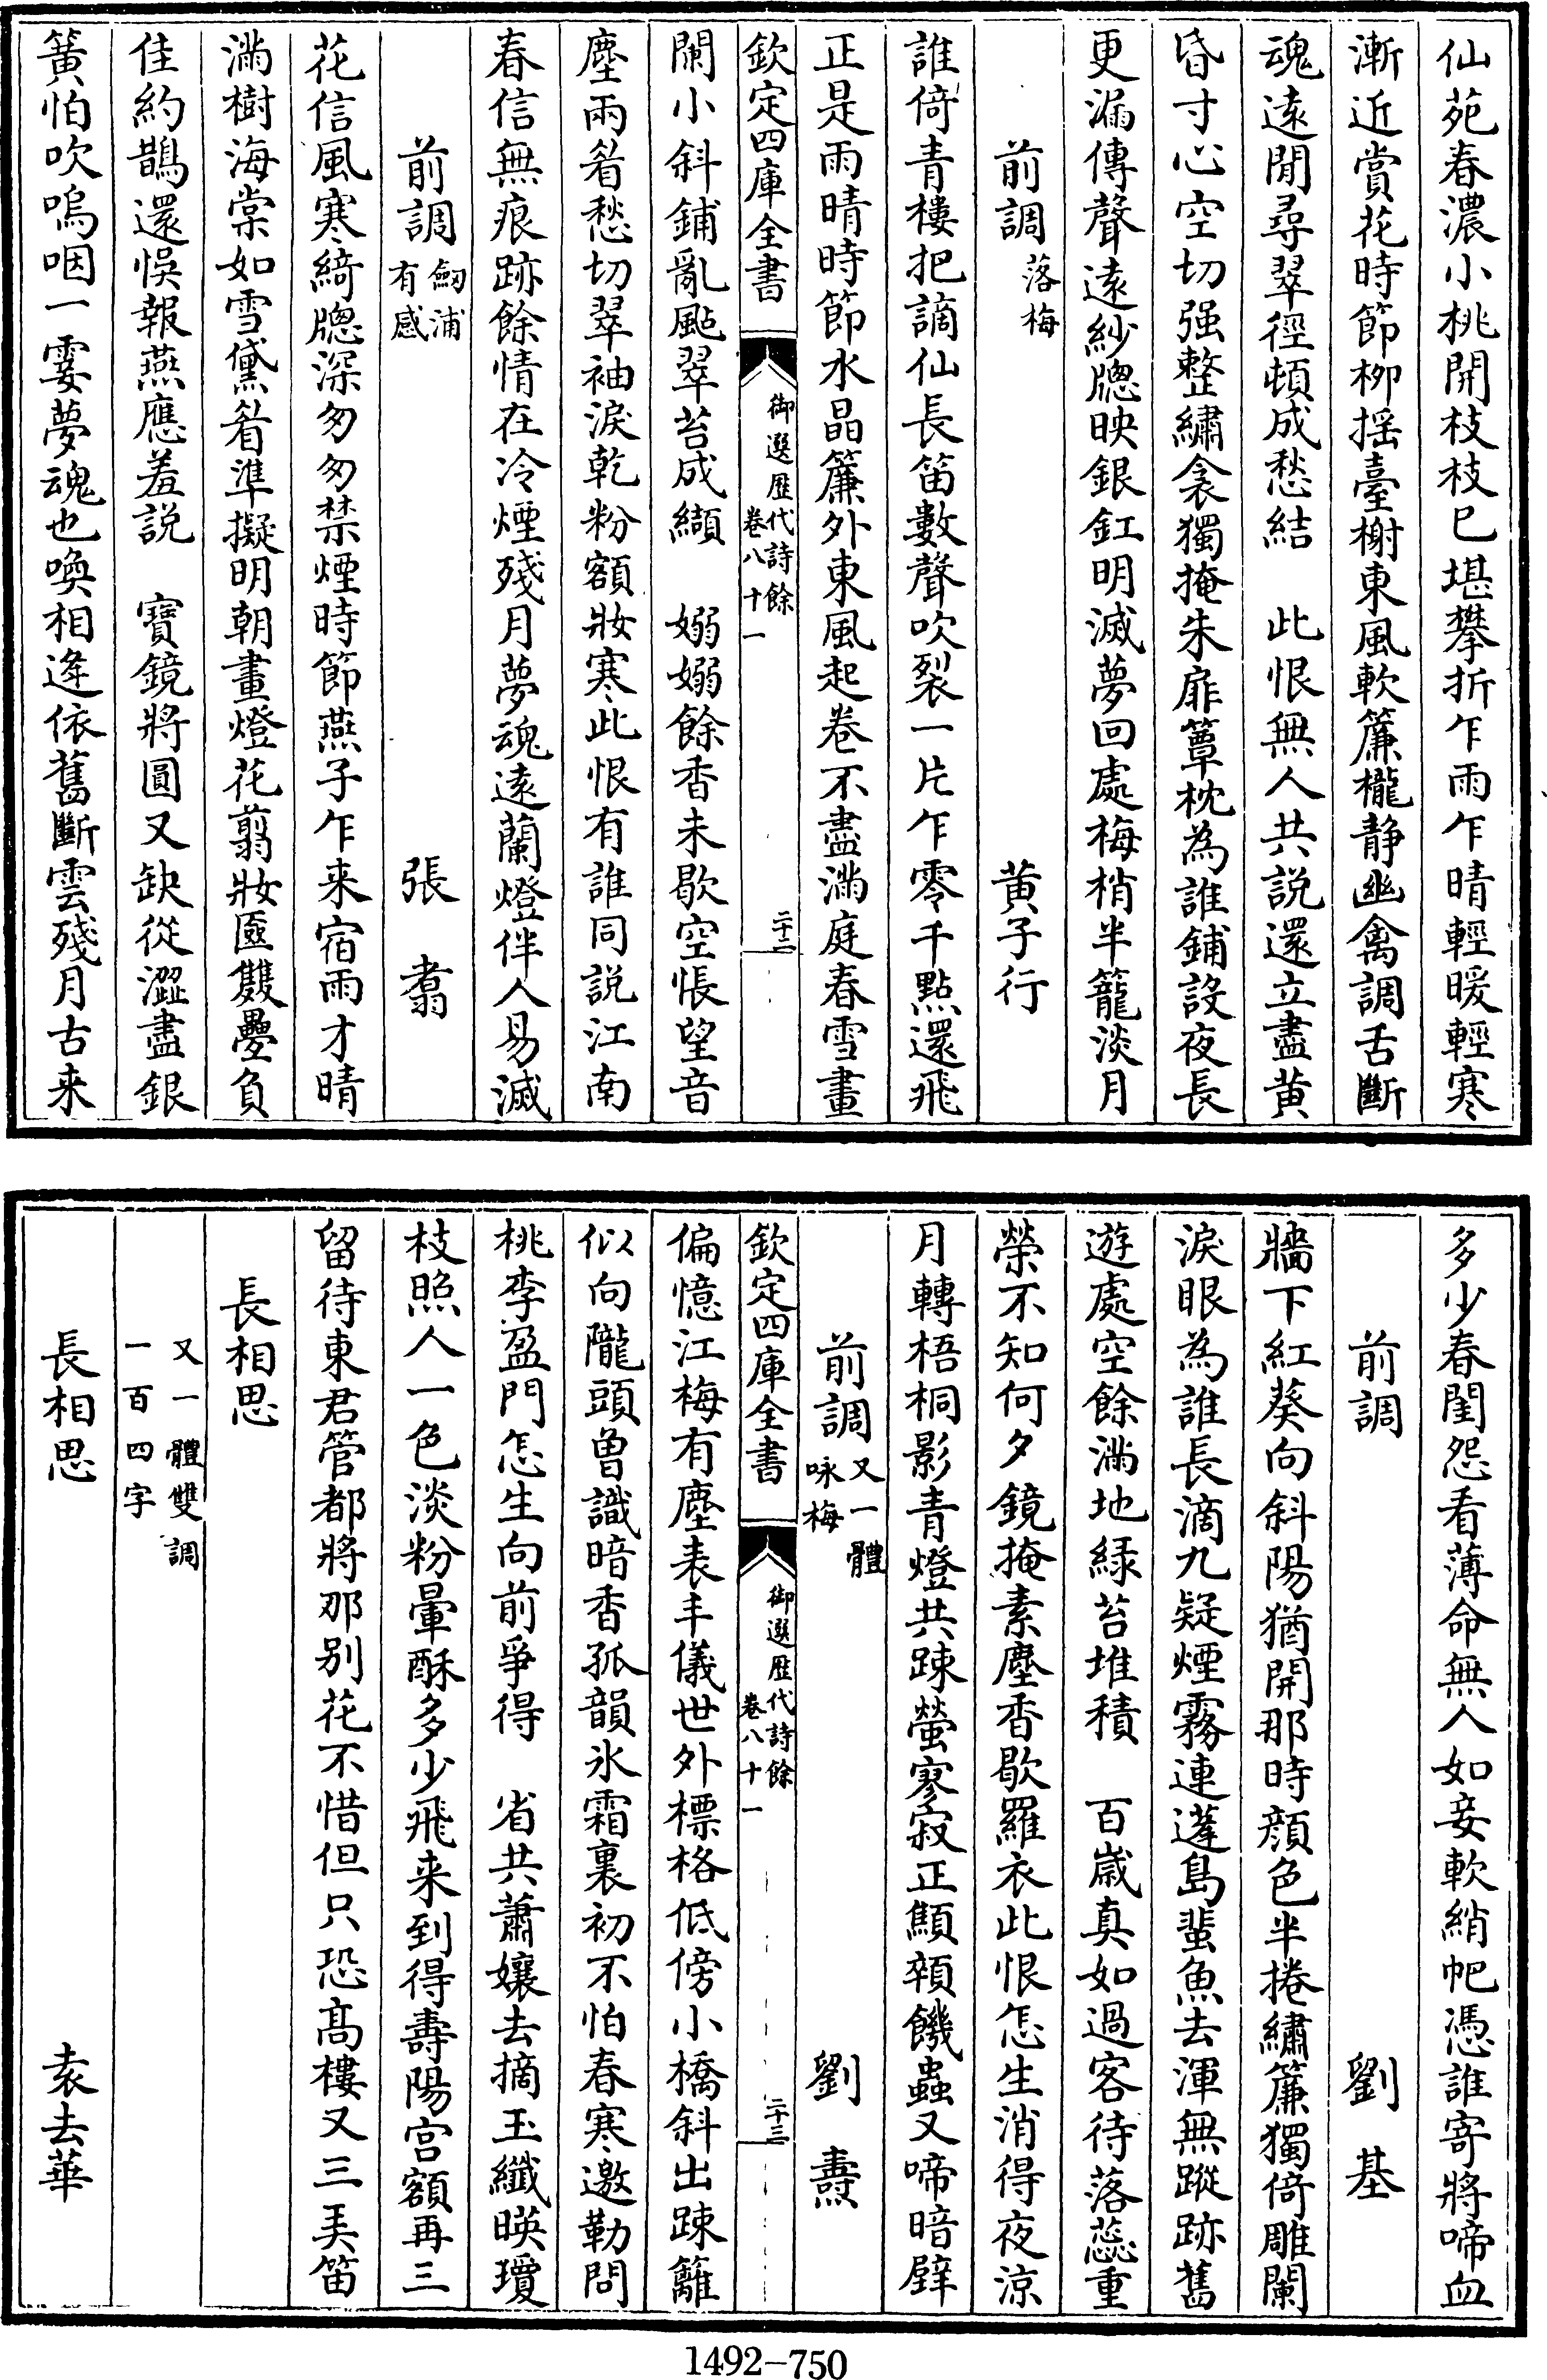 仙苑春濃小桃開枝枝已堪攀折乍雨乍晴輕暖輕寒
漸近賞花時節柳揺臺榭東風軟簾櫳静幽禽調舌斷
魂遠閒尋翠徑頓成愁結　此恨無人共説還立盡黄
昏寸心空切强整繡衾獨掩朱扉簟枕為誰鋪設夜長
更漏傳聲遠紗牕映銀釭明滅夢回處梅梢半籠淡月
前調落梅　黄子行
誰倚青樓把謫仙長笛數聲吹裂一片乍零千點還飛
正是雨晴時節水晶簾外東風起卷不盡滿庭春雪畫
欽定四庫全書　御選歴代詩餘卷八十一　二十二
闌小斜鋪亂颭翠苔成纈　嫋嫋餘香未歇空悵望音
塵雨㸔愁切翠袖淚乾粉額妝寒此恨有誰同説江南
春信無痕跡餘情在冷煙殘月夢魂遠蘭燈伴人易滅
前調劒浦有感　張翥
花信風寒綺牕深匆匆禁煙時節燕子乍来宿雨才晴
滿樹海棠如雪黛㸔準擬明朝畫燈花翦妝匳雙疊負
佳約鵲還悞報燕應羞説　寶鏡將圓又缺從澀盡銀
簧怕吹嗚咽一霎夢魂也喚相逢依舊斷雲殘月古来
多少春閨怨看薄命無人如妾軟綃帊憑誰寄將啼血
前調　劉基
牆下紅葵向斜陽猶開那時顔色半捲繡簾獨倚雕闌
淚眼為誰長滴九疑煙霧連蓬島蜚魚去渾無蹤跡舊
遊處空餘滿地緑苔堆積　百嵗真如過客待落蕊重
榮不知何夕鏡掩素塵香歇羅衣此恨怎生消得夜凉
月轉梧桐影青燈共踈螢寥寂正顦顇饑蟲又啼暗壁
前調又一體咏梅　劉燾
欽定四庫全書　御選歴代詩餘卷八十一　二十三
偏憶江梅有塵表丰儀世外標格低傍小橋斜出踈籬
似向隴頭曽識暗香孤韻氷霜裏初不怕春寒邀勒問
桃李盈門怎生向前爭得　省共蕭孃去摘玉纖暎瓊
枝照人一色淡粉暈酥多少飛来到得壽陽宫額再三
留待東君管都將那别花不惜但只恐髙樓又三弄笛
長相思
又一體雙調一百四字
長相思　袁去華
1492-750